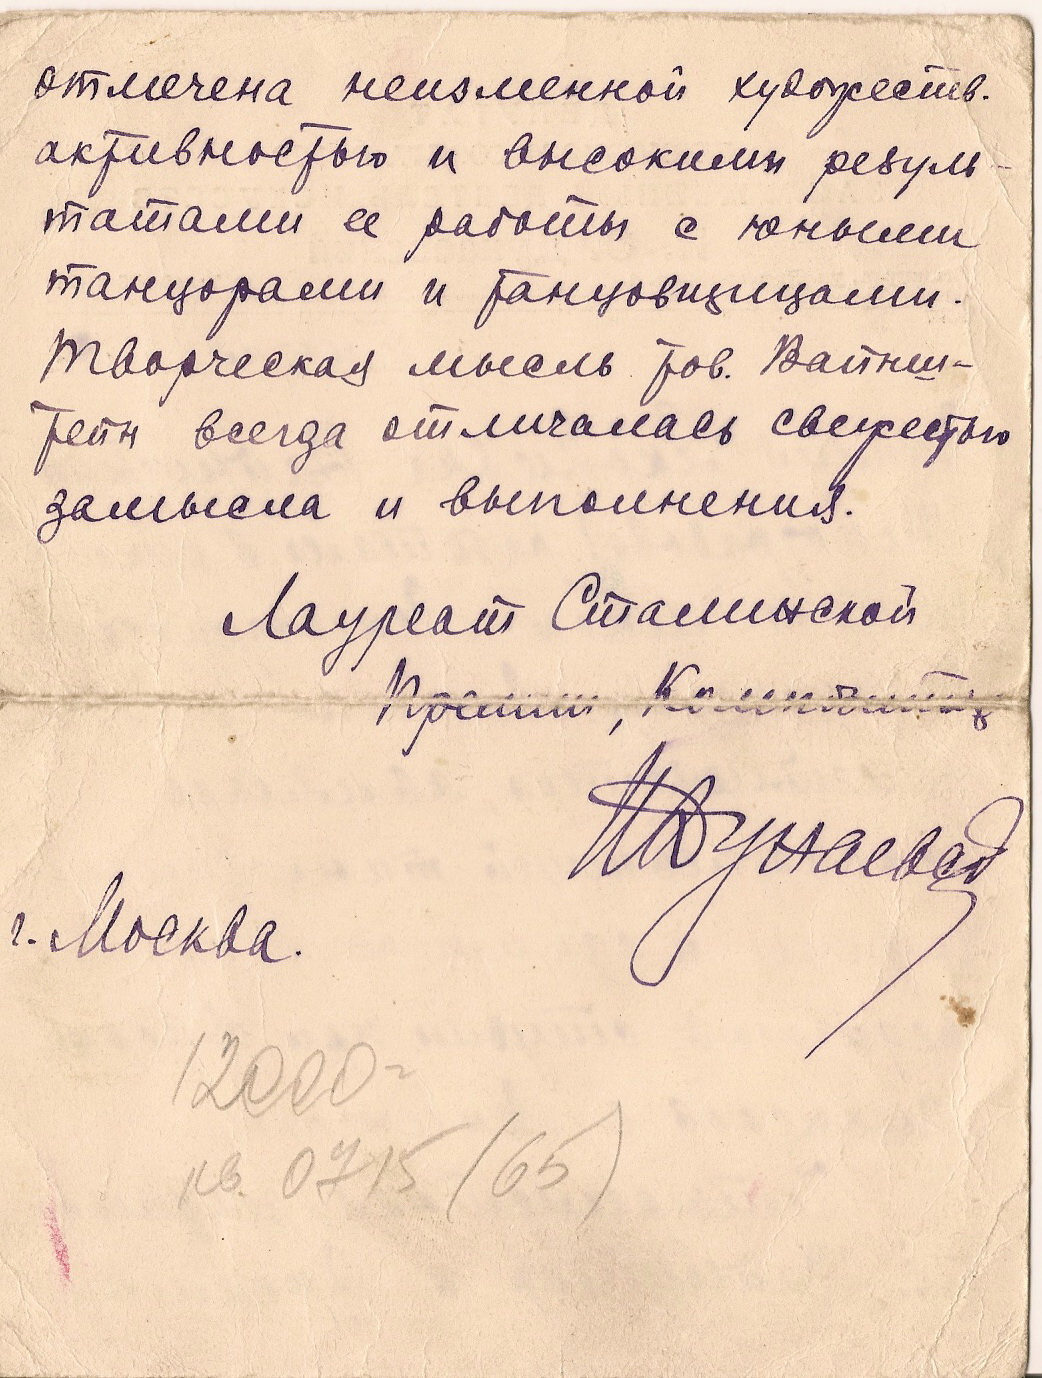 отмечена неизменной художеств.
активностью и высокими резуль-
татами ее работы с юными
танцорами и танцовщицами.
Творческая мысль тов. Вайнш-
тейн всегда отличалась свежестью
замысла и выполнения.
Лауреат Сталинской
Премии, Композитор
ИДунаевский
г. Москва.
12000-
кв. 0715 (65)